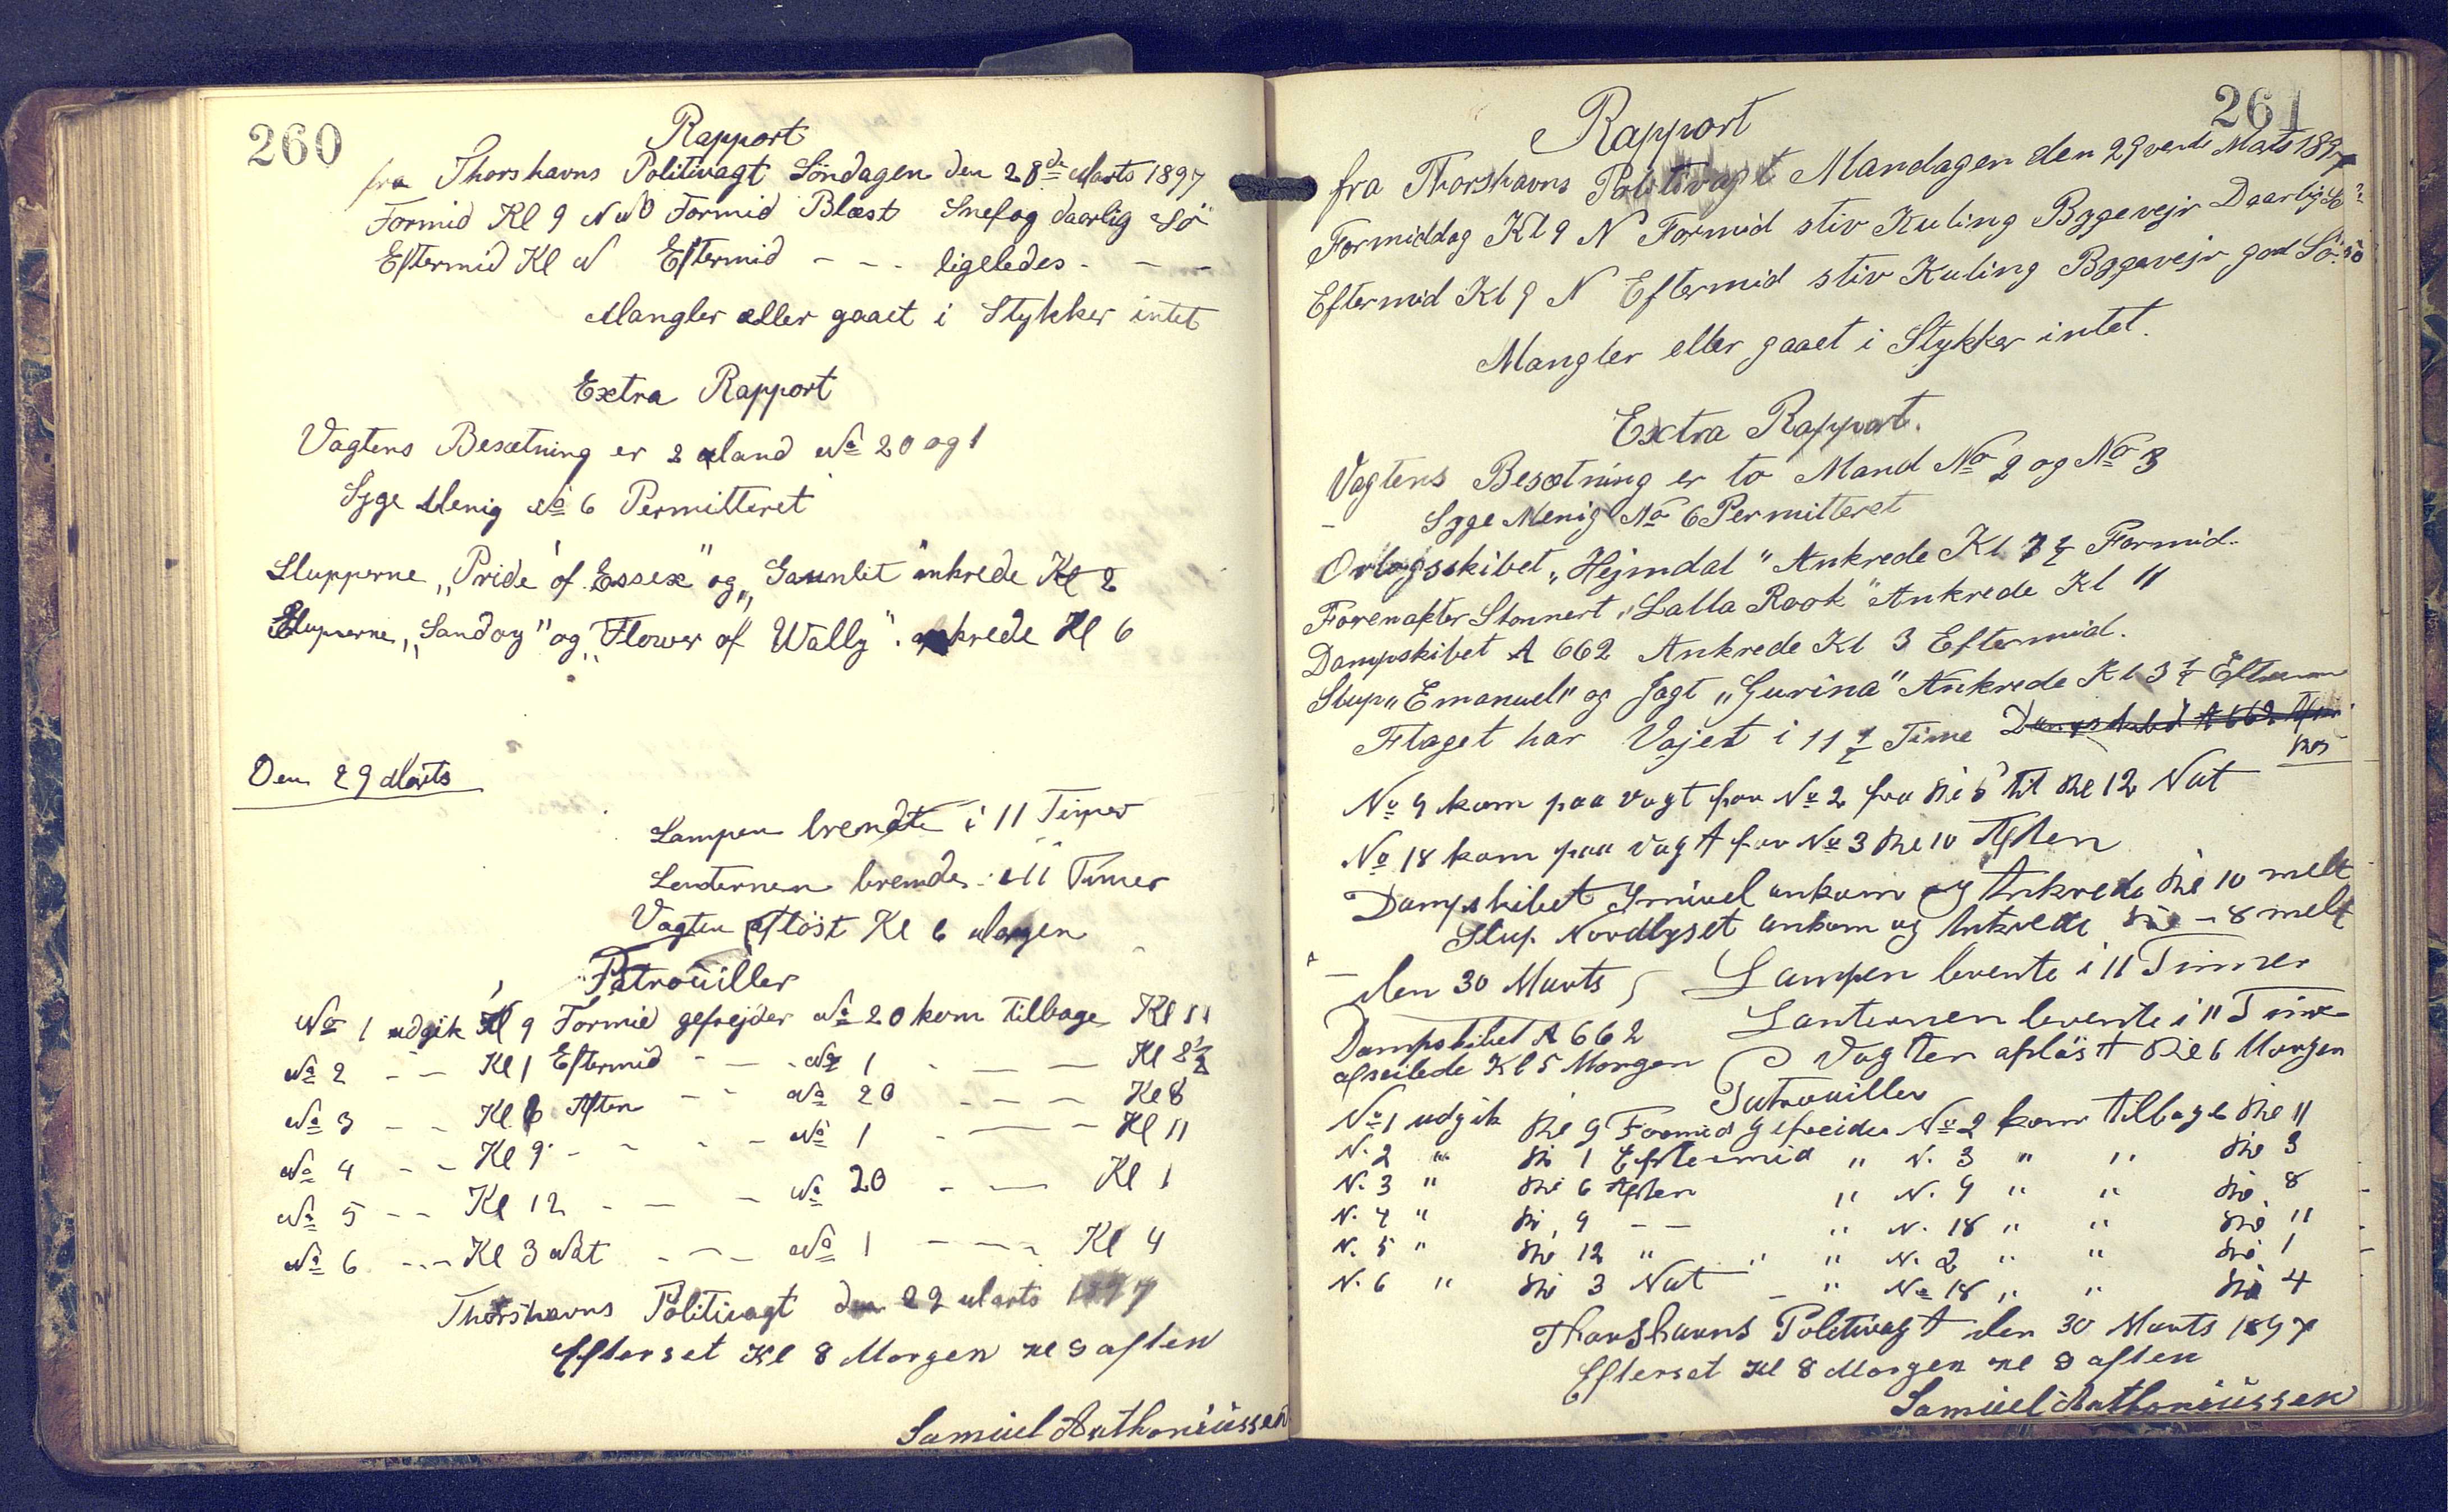 260
Rapport
fra Thorshavns Politivagt Söndagen den 28de Marts 1897
Formid Kl 9 NNO Formid Blæst Snefog daarlig Sö
Eftermid Kl N Eftermid - - - ligeledes - - -
Mangler eller gaaet i Stykker intet
Extra Rapport
Vagtens Besætning er 2 Mand No 20 og 1
Syge Menig No 6 Permitteret
Slupperne „Pride of Essex" og „Gaunlit" ankrede Kl 2
Slupperne, „Sandoy" og „Flower of Wally". ankrede Kl 6
Den 29 Marts
Lampen brendte i 11 Timer
Lanternen brende i 11 Timer
Vagten aflöst Kl 6 Morgen
Patrouiller
No 1 udgik Kl 9 Formid gefrejder No 20 kom tilbage Kl 11
No 2 - - Kl 1 Eftermid - - - No 1 - - - Kl 2½
No 3 - - Kl 6 Aften - - No 20 - - - Kl 8
No 4 - - Kl 9 - - - - No 1 - - - Kl 11
No 5 - - Kl 12 - - - No 20 - - Kl 1
No 6 - - Kl 3 Nat - - - No 1 - - - Kl 4
Thorshavns Politivagt den 29 Marts 1897
Efterset Kl 8 Morgen Kl 9 aften
Samuel Anthoniussen
261
Rapport
fra Thorshavns Politivagt Mandagen den 29vende Mats 1897
Formiddag Kl 9 N Formid stiv Kuling Bygevejr Daarlig Sö
Eftermid Kl 9 N Eftermid stiv Kuling Bygevejr god Sö
Mangler eller gaaet i Stykker intet.
Extra Rapport.
Vagtens Besætning er to Mand No 2 og No 3
- Syge Menig No 6 Permitteret
Orlogsskibet „Hejmdal" Ankrede Kl 7½ Formid.
Forenakter Skonnert „Lalla Rook" Ankrede Kl 11
Dampskibet A 662 Ankrede Kl 3 Eftermid.
Slup „Emanuel" og Jagt „Gurina" Ankrede Kl 3½ Efterm
Flaget har Vajet i 11½ Time Dampskibed A 662
No 9 kom paa vagt for No 2 fra Kl 6 til Kl 12 Nat
No 18 kom paa vagt for No 3 Kl 10 Aften
Dampskibet Smiril ankom og Ankrede Kl 10 melt
Slup Nordlyset ankom og Ankrede Kl - 8 melt
- den 30 Marts Lampen brente i 11 Timer
Dampskibet A 662 Lanternen brente i 11 Timer
afseilede Kl 5 Morgen Vagten aflöst Kl 6 Morgen
Patrouiller
No 1 udgik Kl 9 Formid gefreider No 2 kom tilbage Kl 11
N. 2 " Kl 1 Eftermid " N. 3 " " Kl 3
N. 3 " Kl 6 Aften " N. 9 " " Kl 8
N. 4 " Kl 9 - - " N. 18 " " Kl 11
N. 5 " Kl 12 " " " N. 2 " " Kl 1
N. 6 " Kl 3 Nat - " No 18 " " Kl 4
Thorshavns Politivagt den 30 Marts 1897
Efterset Kl 8 Morgen Kl 9 aften
Samuel Anthoniussen